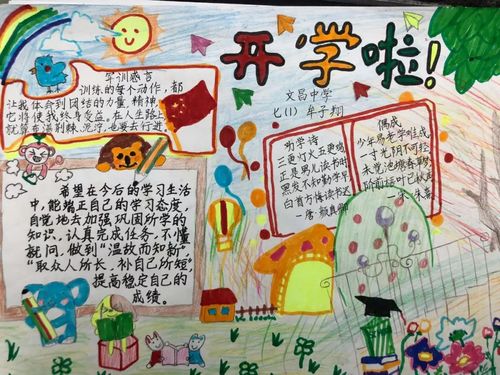 开学啦!
文昌中学
七(1) 牟子翔
军训感言
训练的每个动作,都
让我体会到团结的力量,精神,
它将使我终身受益。在人生路上
就算布满荆棘、泥泞,也要去行进
希望在今后的学习生活
中,能端正自己的学习态度,
自觉地去加强巩固所学的
知识,认真完成任务,不懂
就问,做到“温故而知新”
“取众人所长,补自己所短”,
提高稳定自己的
成绩。
为学诗
三更灯火五更鸡
正是男儿读书时
黑发不知勤学早
白首方悔读书迟
-唐·颜真卿
偶成
少年易老学难成
一寸光阴不可轻
未觉池塘春草梦
阶前梧叶已秋声
宋·朱熹